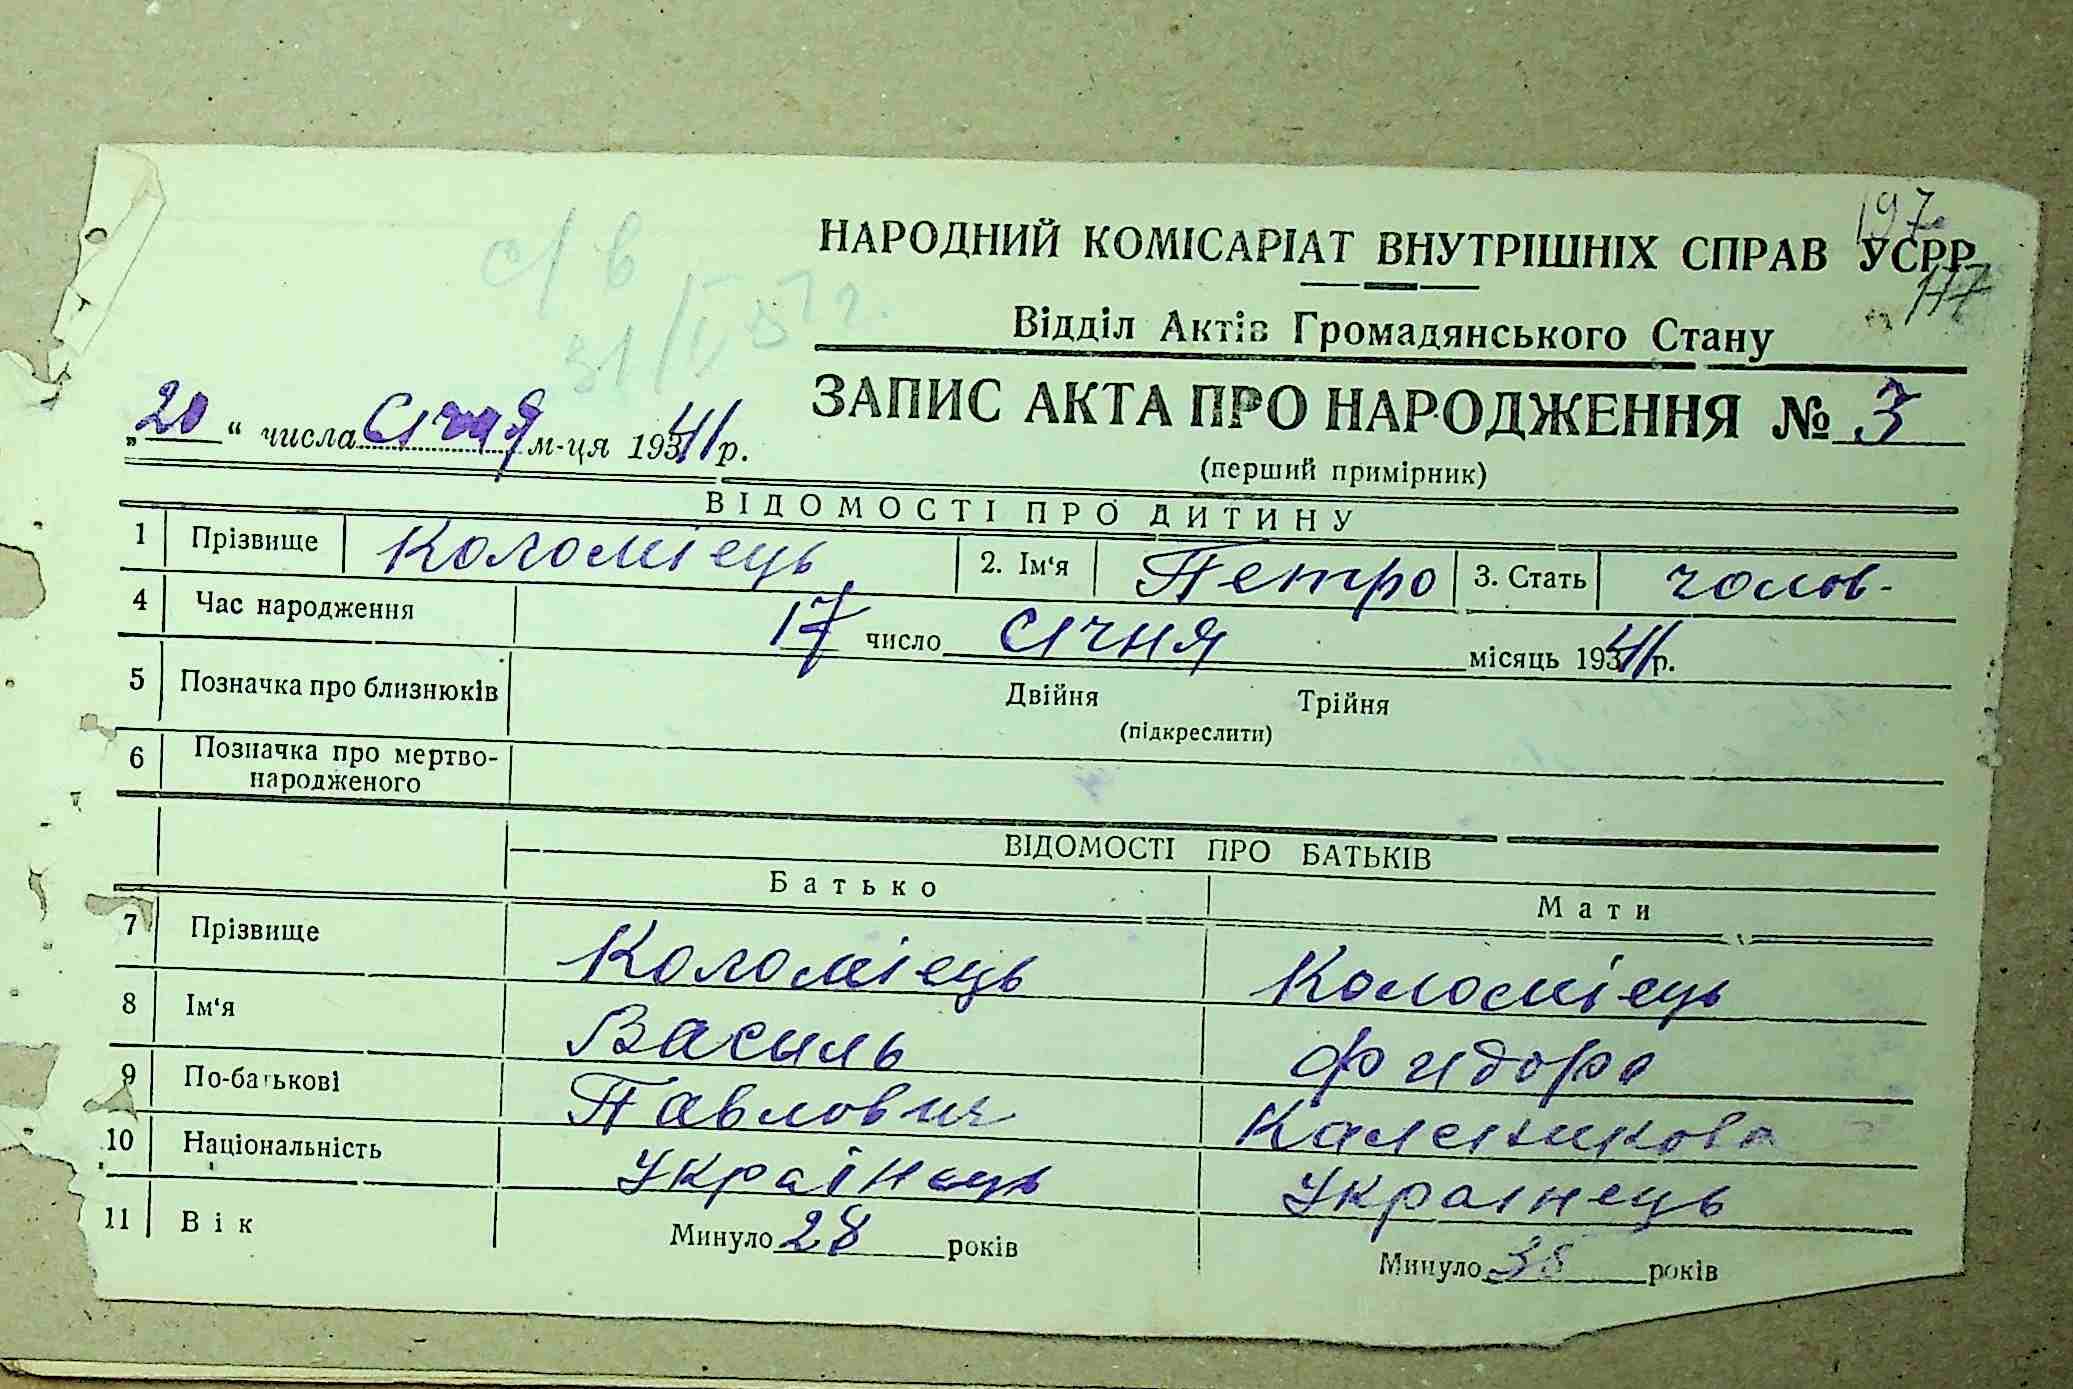 197
НАРОДНИЙ КОМІСАРІАТ ВНУТРІШНІХ СПРАВ УСРР
117
с/в
31/V 57 г.
Відділ Актів Громадянського Стану
ЗАПИС АКТА ПРО НАРОДЖЕННЯ № 3
„20“ числа Січня м-ця 1941 р.
(перший примірник)
ВІДОМОСТІ ПРО ДИТИНУ
1 Прізвище Коломієць 2. Ім‘я Петро 3. Стать чолов-
4 Час народження 17 число січня місяць 1941 р.
5 Позначка про близнюків Двійня Трійня
(підкреслити)
6 Позначка про мертво-
народженого
ВІДОМОСТІ ПРО БАТЬКІВ
Батько Мати
7 Прізвище Коломієць Коломієць
8 Ім‘я Василь Фидора
9 По-батькові Павлович Каленикова
10 Національність Українець Українець
11 Вік Минуло 28 років Минуло 38 років